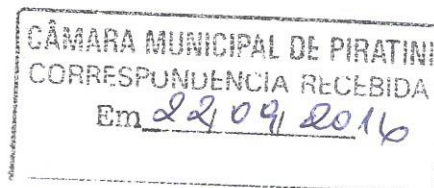 CÂMARA MUNICIPAL DE PIRATINI
CORRESPONDENCIA RECEBIDA
Em 22/09/2016